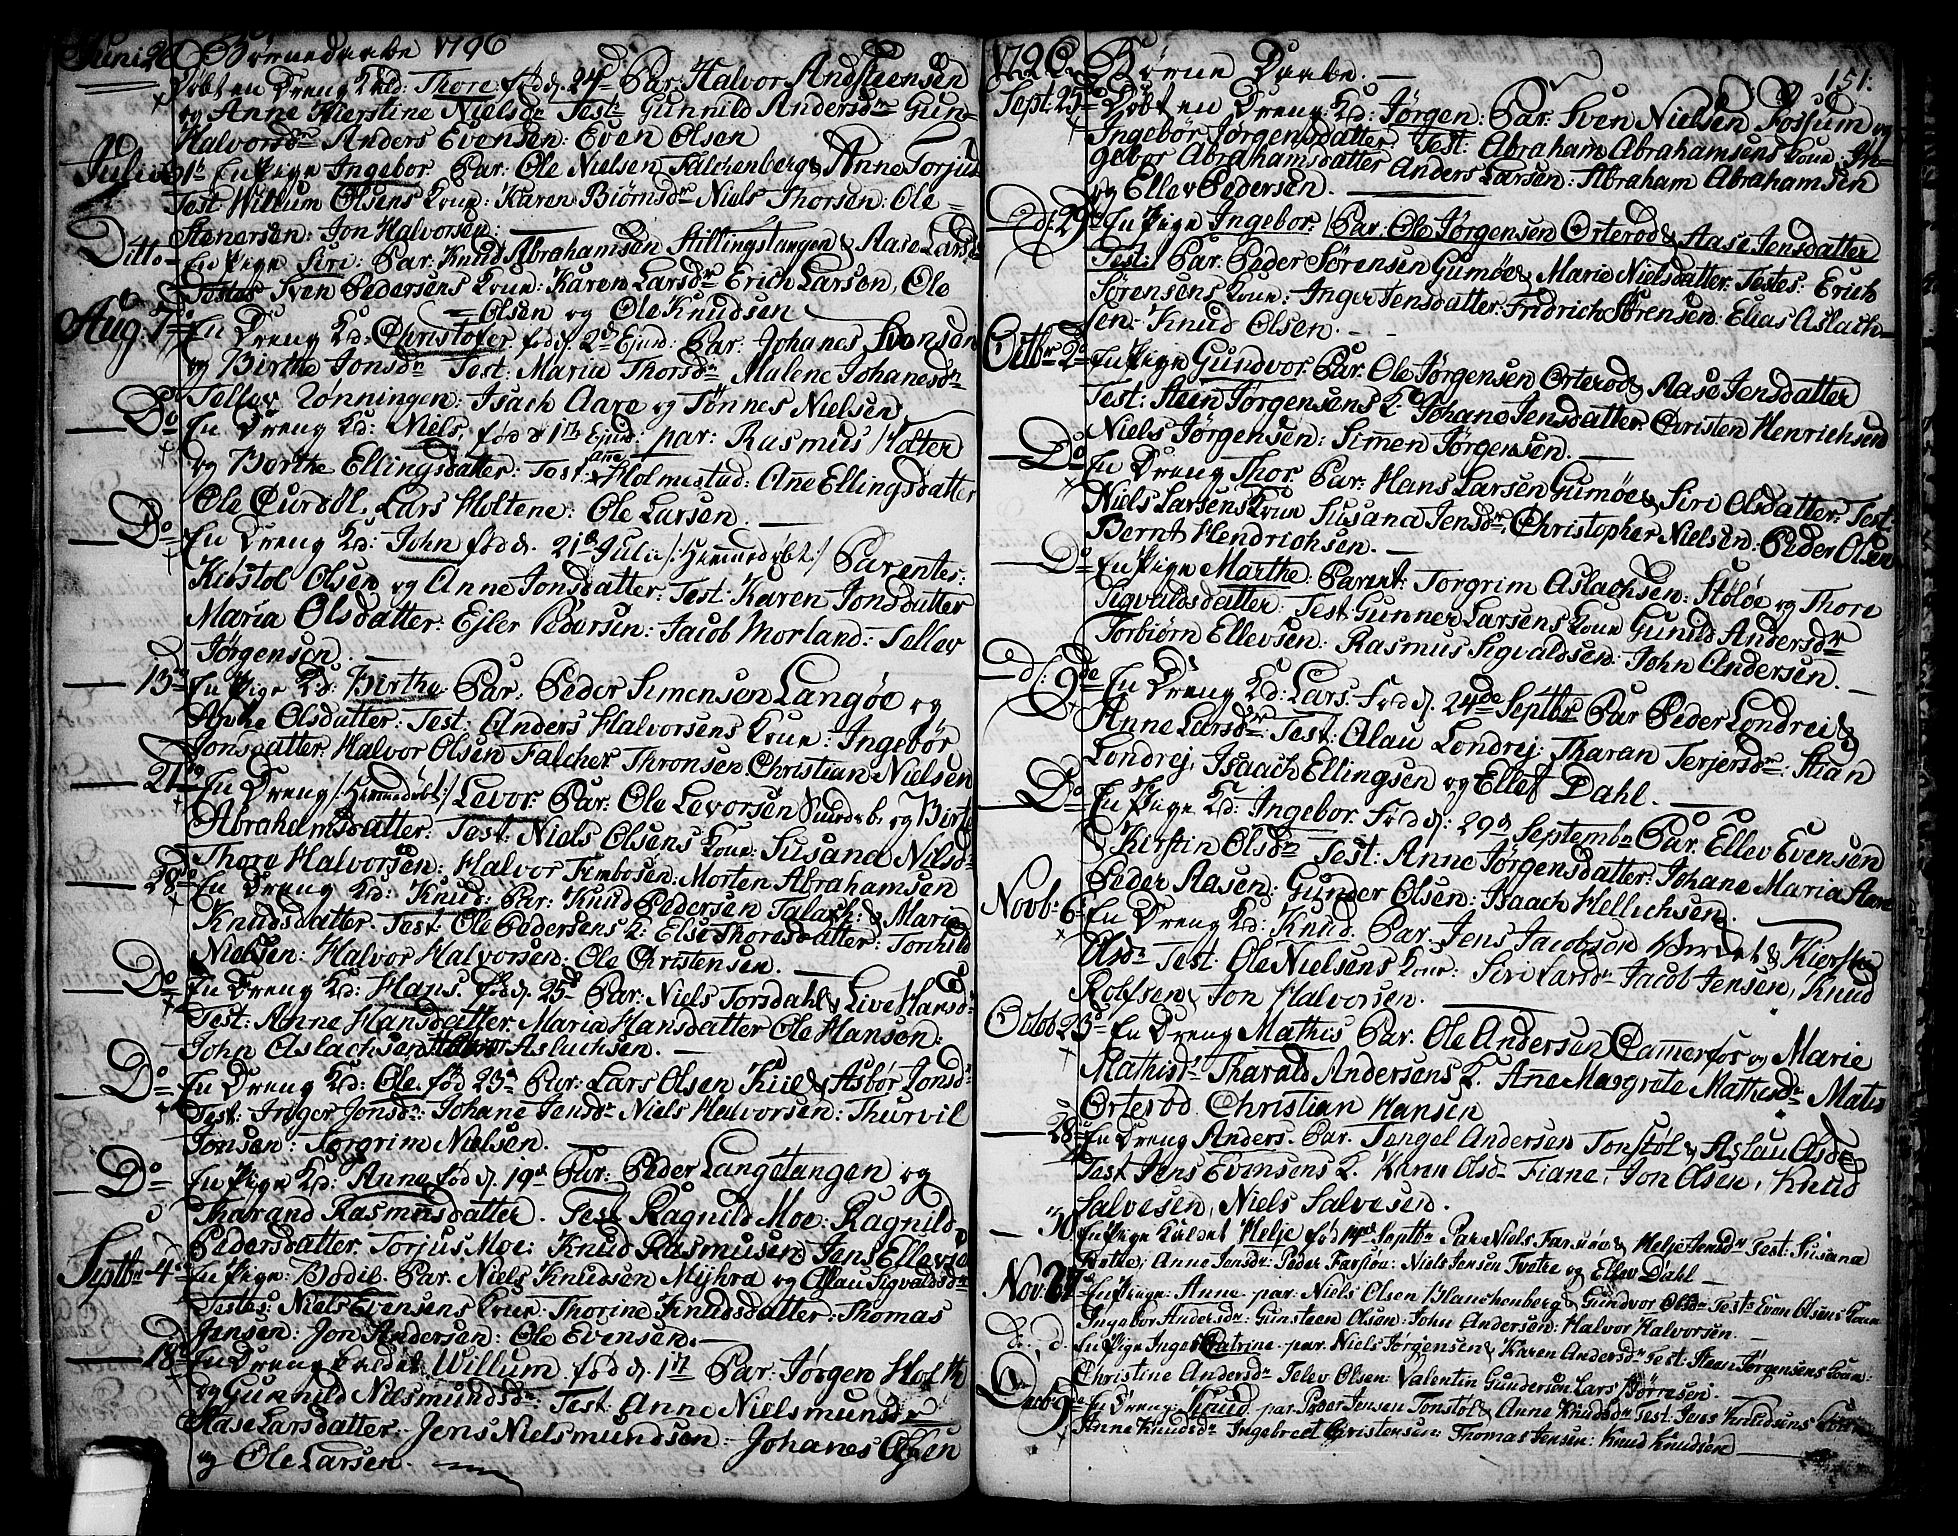 Juni 26 Børnedaabe 1796
Døbt en Dreng Kld: Thore fød d. 24d Par: Halvor Andsteensen
og Anne Kierstine Nielsdr Test: Gunnild Andersdr Gun-
Halvorsdr Anders Evensen: Even Olsen
Julii 31te En Pige Ingebor Par: Ole Nielsen Falchenberg & Anne Torjusd
Test: Willum Olsens Kone: Karen Biørnsdr Niels Thorsen: Ole
Stenersen: Jon Halvorsen:
Ditto En Pige Siri: Par: Knud Abrahamsen Stillingstangen & Aase Larsd
Testes Sven Pedersens Kone: Karen Larsdr Erich Larsen, Ole
Olsen og Ole Knudsen
Aug: 7de En Dreng Kd: Christofer fød d. 2d Ejusd: Par: Johanes Svensen
og Birthe Jonsdr Test: Maria Thorsdr Malene Johanesdr
Tellev Rønningen: Isach Aare og Tønnes Nielsen
Do En Dreng Kd: Niels, fød d 1te Ejusd: par: Rasmus Holter
og Berthe Ellingsdatter: Test: Holmestad: Ane Ellingsdatter
Ole Burdøl, Lars Holtene: Ole Larsen.
Do En Dreng Kd: John fød d. 21d Julii /: Hiemmedøbt :/ Parentes:
Kirstol Olsen og Anne Jonsdatter: Test: Karen Jonsdatter
Maria Olsdatter: Ejler Pedersen: Jacob Morland: Tellev
Jørgensen
13d En Pige Kd: Birthe Par: Peder Simensen Langøe og
Apke Olsdatter: Test: Anders Halvorsens Kone: Ingebør
Jonsdatter: Halvor Olsen Falcher Thronsen Christian Nielsen
21de En Dreng /: Hiemedøbt :/ Levor: Par: Ole Levorsen Sundsb: og Birte
Abrahamsdatter: Test: Niels Olsens Kone: Susana Nilsdr
Thore Halvorsen: Halvor Simbosen: Morten Abrahamsen
28de En Dreng Kd: Knud: Par: Knud Pedersen Talach: & Marie
Knudsdatter. Test: Ole Pedersens K: Else Thoresdatter: Torchild
Nielsen: Halvor Halvorsen: Ole Christensen.
Do En Dreng Kd: Hans. fød d. 25d Par: Niels Torsdahl & Live Hansdr
Test: Anne Hansdatter. Maria Hansdatter Ole Hansen:
John Aslachsen Aslachsen.
Do En Dreng Kd: Ole fød 23d Par: Lars Olsen Kiil & Asbør Jonsdr
Test: Inger Jensdr: Johane Jensdr Niels Halvorsen: Thurvil
Jonsen: Torgrim Nielsen.
Do En Pige Kd: Anne fød d. 19d Par: Peder Langetangen og
Tharand Rasmusdatter. Test Ragnild Moe: Ragnild
Pedersdatter. Torjus Moe: Knud Rasmusen Jens Ellevsen
Septbr 4de En Pige: Bodil. Par: Niels Knudsen Myhra og Olau Sigvaldsdr
Testes: Niels Evensens Kone Thorine Knudsdatter: Thomas
Jensen: Jon Andersen: Ole Evensen.
18de En Dreng kaldet Willum. fød d. 1te Par: Jørgen Holth
og Gunnild Nielsmundsdr: Test: Anne Nielsmundsdr
Aase Larsdatter: Jens Nielsmundsen: Johanes Olsen
og Ole Larsen.
1796 Børne Daabe. 151.
Sept: 25de Døbt en Dreng Kd: Jørgen: Par: Sven Nielsen Fossum og
Ingebør Jørgensdatter. Test: Abraham Abrahamsens Kone: In-
gebor Abrahamsdatter Anders Larsen: Abraham Abrahamsen
og Ellev Pedersen.
d. 29de En Pige Ingebor: Par. Ole Jørgensen Orterød & Aase Jensdatter
Test: Par: Peder Sørensen Gumøe & Marie Nielsdatter. Testes: Erich
Sørensens Kone: Inger Jensdatter: Fridrich Sørensen: Elias Aslach-
sen: Knud Olsen.
Octbr 2d En Pige Gundvor. Par. Ole Jørgensen Orterød & Aase Jensdatter
Test: Stein Jørgensens K. Johane Jensdatter. Christen Henrichsen
Niels Jørgensen: Simen Jørgensen.
Do En Dreng Thor. Par: Hans Larsen Gumøe & Siri Olsdatter: Test:
Niels Larsens Kone Susana Jensdr. Christopher Nielsen: Peder Olsen
Bernt Hendrichsen.
Do En Pige Marthe: Parent: Torgrim Aslachsen: Støløe og Thore
Sigvaldsdatter: Test Gunner Larsens Kone Gunild Andersdr
Torbiørn Ellevsen: Rasmus Sigvaldsen: John Andersen.
d: 9de En Dreng Kd: Lars. Fød d. 24de Septbr Par Peder Londrei &
Anne Larsdr: Test: Olau Londrej: Tharan Terjersdr: Stian
Londrej: Isaach Ellingsen og Ellef Dahl.
Do En Pige Kd: Ingebor. Fød d: 29d Septembr Par. Ellev Evensen
& Kirstin Olsdr Test: Anne Jørgensdatter: Johane Maria Aare
Peder Aasen: Gunder Olsen: Isaach Hellichsen.
Novb: 6te En Dreng Kd: Knud. Par. Jens Jacobsen & Kiersten
Olsdr Test: Ole Nielsens Kone: Siri Larsdr Jacob Jensen, Knud
Rolfsen & Jon Halvorsen.
Octob 23de En Dreng Mathis, Par. Ole Andersen Damerfos og Marie
Mathisdr Tharald Andersens K. Ane Margrete Mathisdr Mats
Orterød Christian Hansen
28de En Dreng Anders. Par. Tengel Andersen Tonstøl & Aslau Olsdr
Test Jens Evensens K. Karen Olsdr Fiane, Jon Olsen, Knud
Salvesen, Niels Salvesen.
30 En Pige Kaldet Helje fød 14de Septbr Par Niels Farsiøe & Helje Jensdr Test: Susana
Tvette; Anne Jensdr: Peder Farsiøe: Niels Jensen Tvete og Ellev Dahl
Nov: 27 En Pige: Anne par: Niels Olsen Blanchenberg & Gundvor Olsdr Test: Even Olsens Kone
Ingebor Andersdr: Gunsteen Olsen: John Andersen: Halvor Halvorsen.
d. d. En Pige Inger Catrine par: Niels Jørgensen & Karen Andersdr Test: Steen Jørgensens Kone:
Christine Andersdr Telev Olsen: Valentin Gundersen Lars Børresen.
En Dreng: Knud par: Peder Jensen Tonstøl & Anne Knudsdr Test: Jens Knudsens Kone
Anne Knudsdr Ingebret Christensen: Thomas Jensen: Knud Knudsen